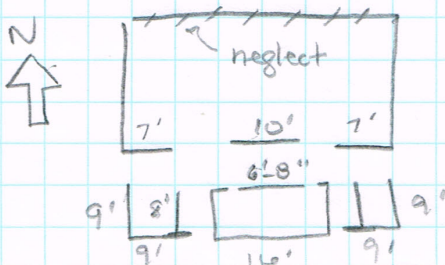 N
neglect
7' 10' 7'
6'-8"
9' 8' 9'
9' 16' 9'